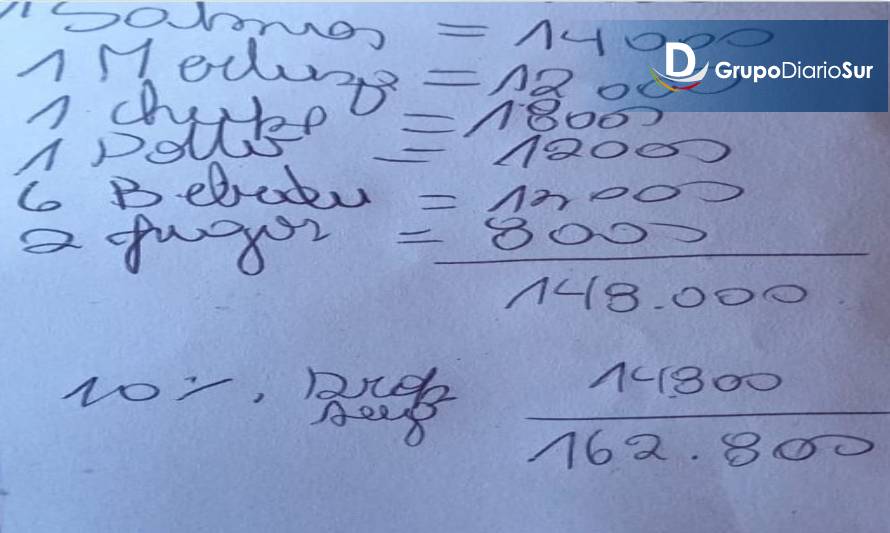 1 Salmon = 14000
1 Merluza = 12000
1 Chupe = 18000
1 Pollo = 12000
6 Bebidas = 12000
2 jugos = 8000
148.000
10%. Prop 14800
162.800
GrupoDiarioSur